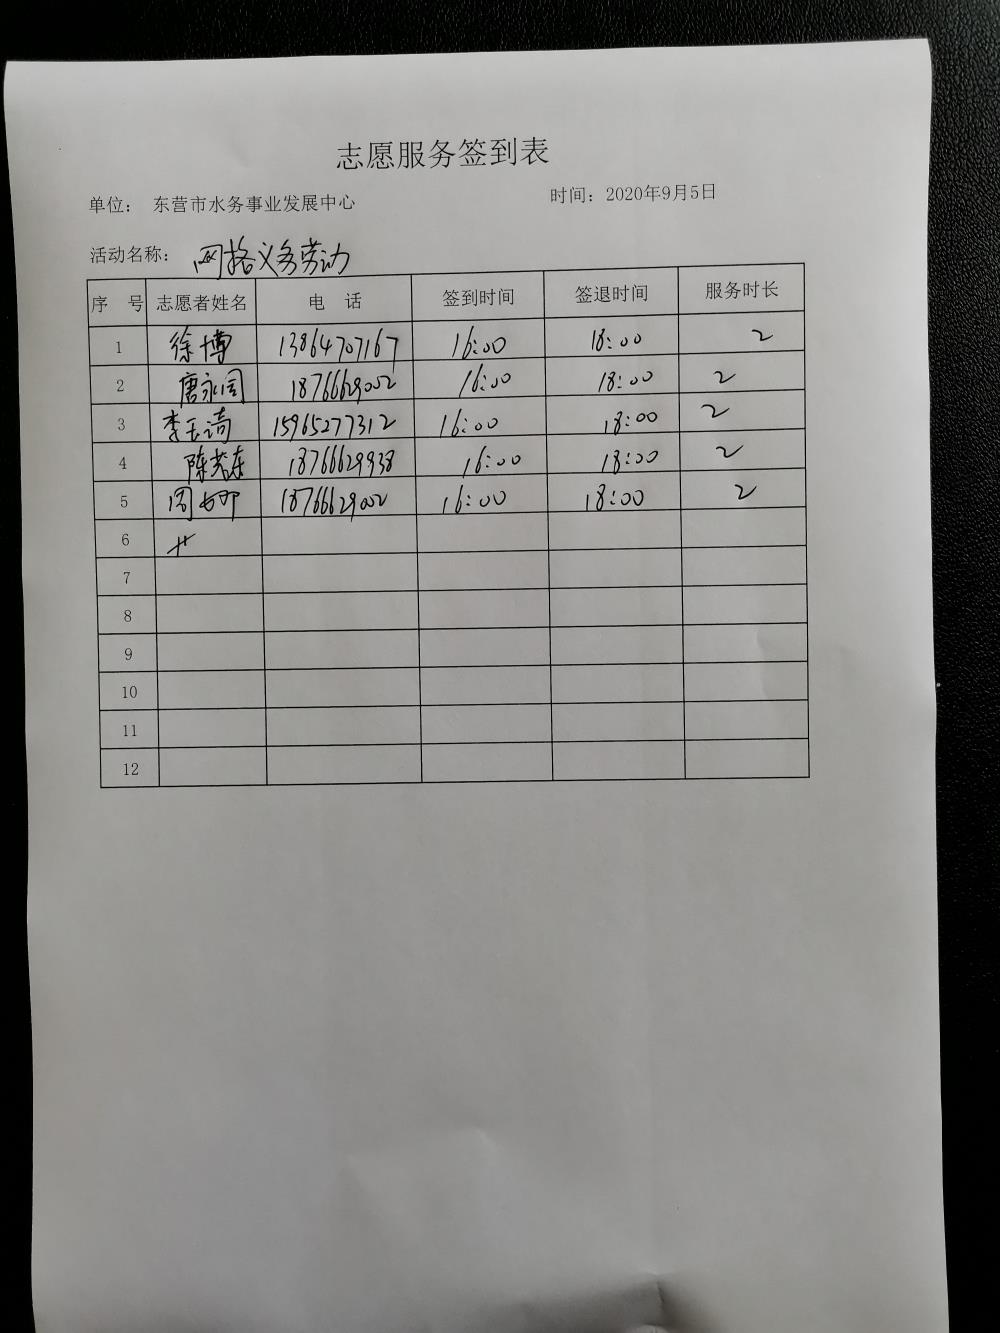 志愿服务签到表
单位： 东营市水务事业发展中心 时间：2020年9月5日
活动名称： 网格义务劳动
序 号 志愿者姓名 电 话 签到时间 签退时间 服务时长
1 徐博 13864707167 16:00 18:00 2
2 唐永 18766629002 16:00 18:00 2
3 李玉 15965277312 16:00 18:00 2
4 陈 东 18766629938 16:00 18:00 2
5 周 18766629002 16:00 18:00 2
6
7
8
9
10
11
12